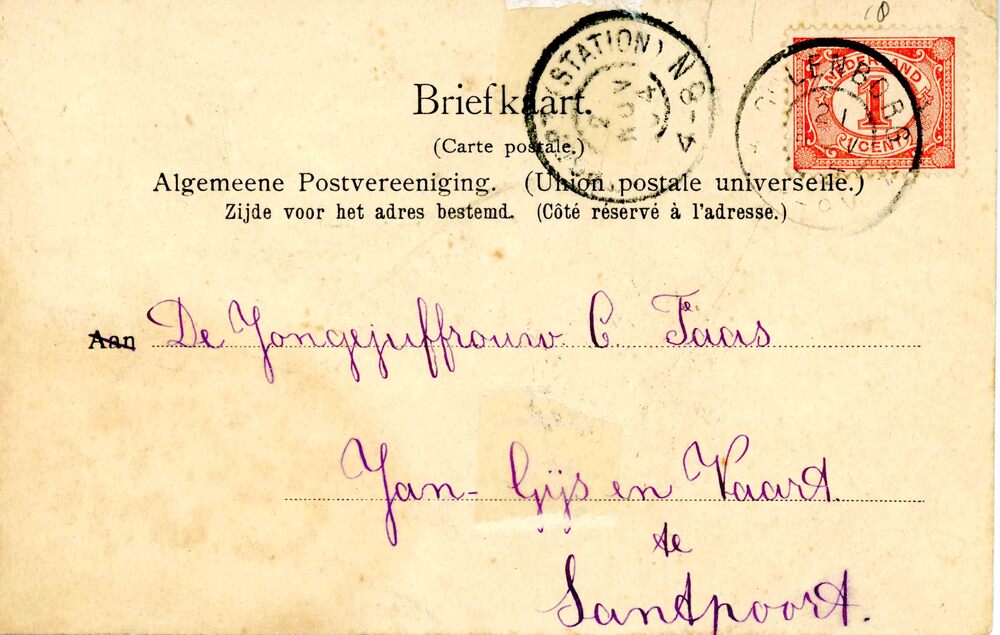 Briefkaart.
(Carte postale.)
Algemeene Postvereeniging. (Union postale universelle.)
Zijde voor het adres bestemd. (Côté réservé à l'adresse.)
NEDERLAND
1
CENT
(STATION) N 8-4
NOV
Aan De Jongejuffrouw C. Faas
Jan-Gijsen Vaart
te
Santpoort.